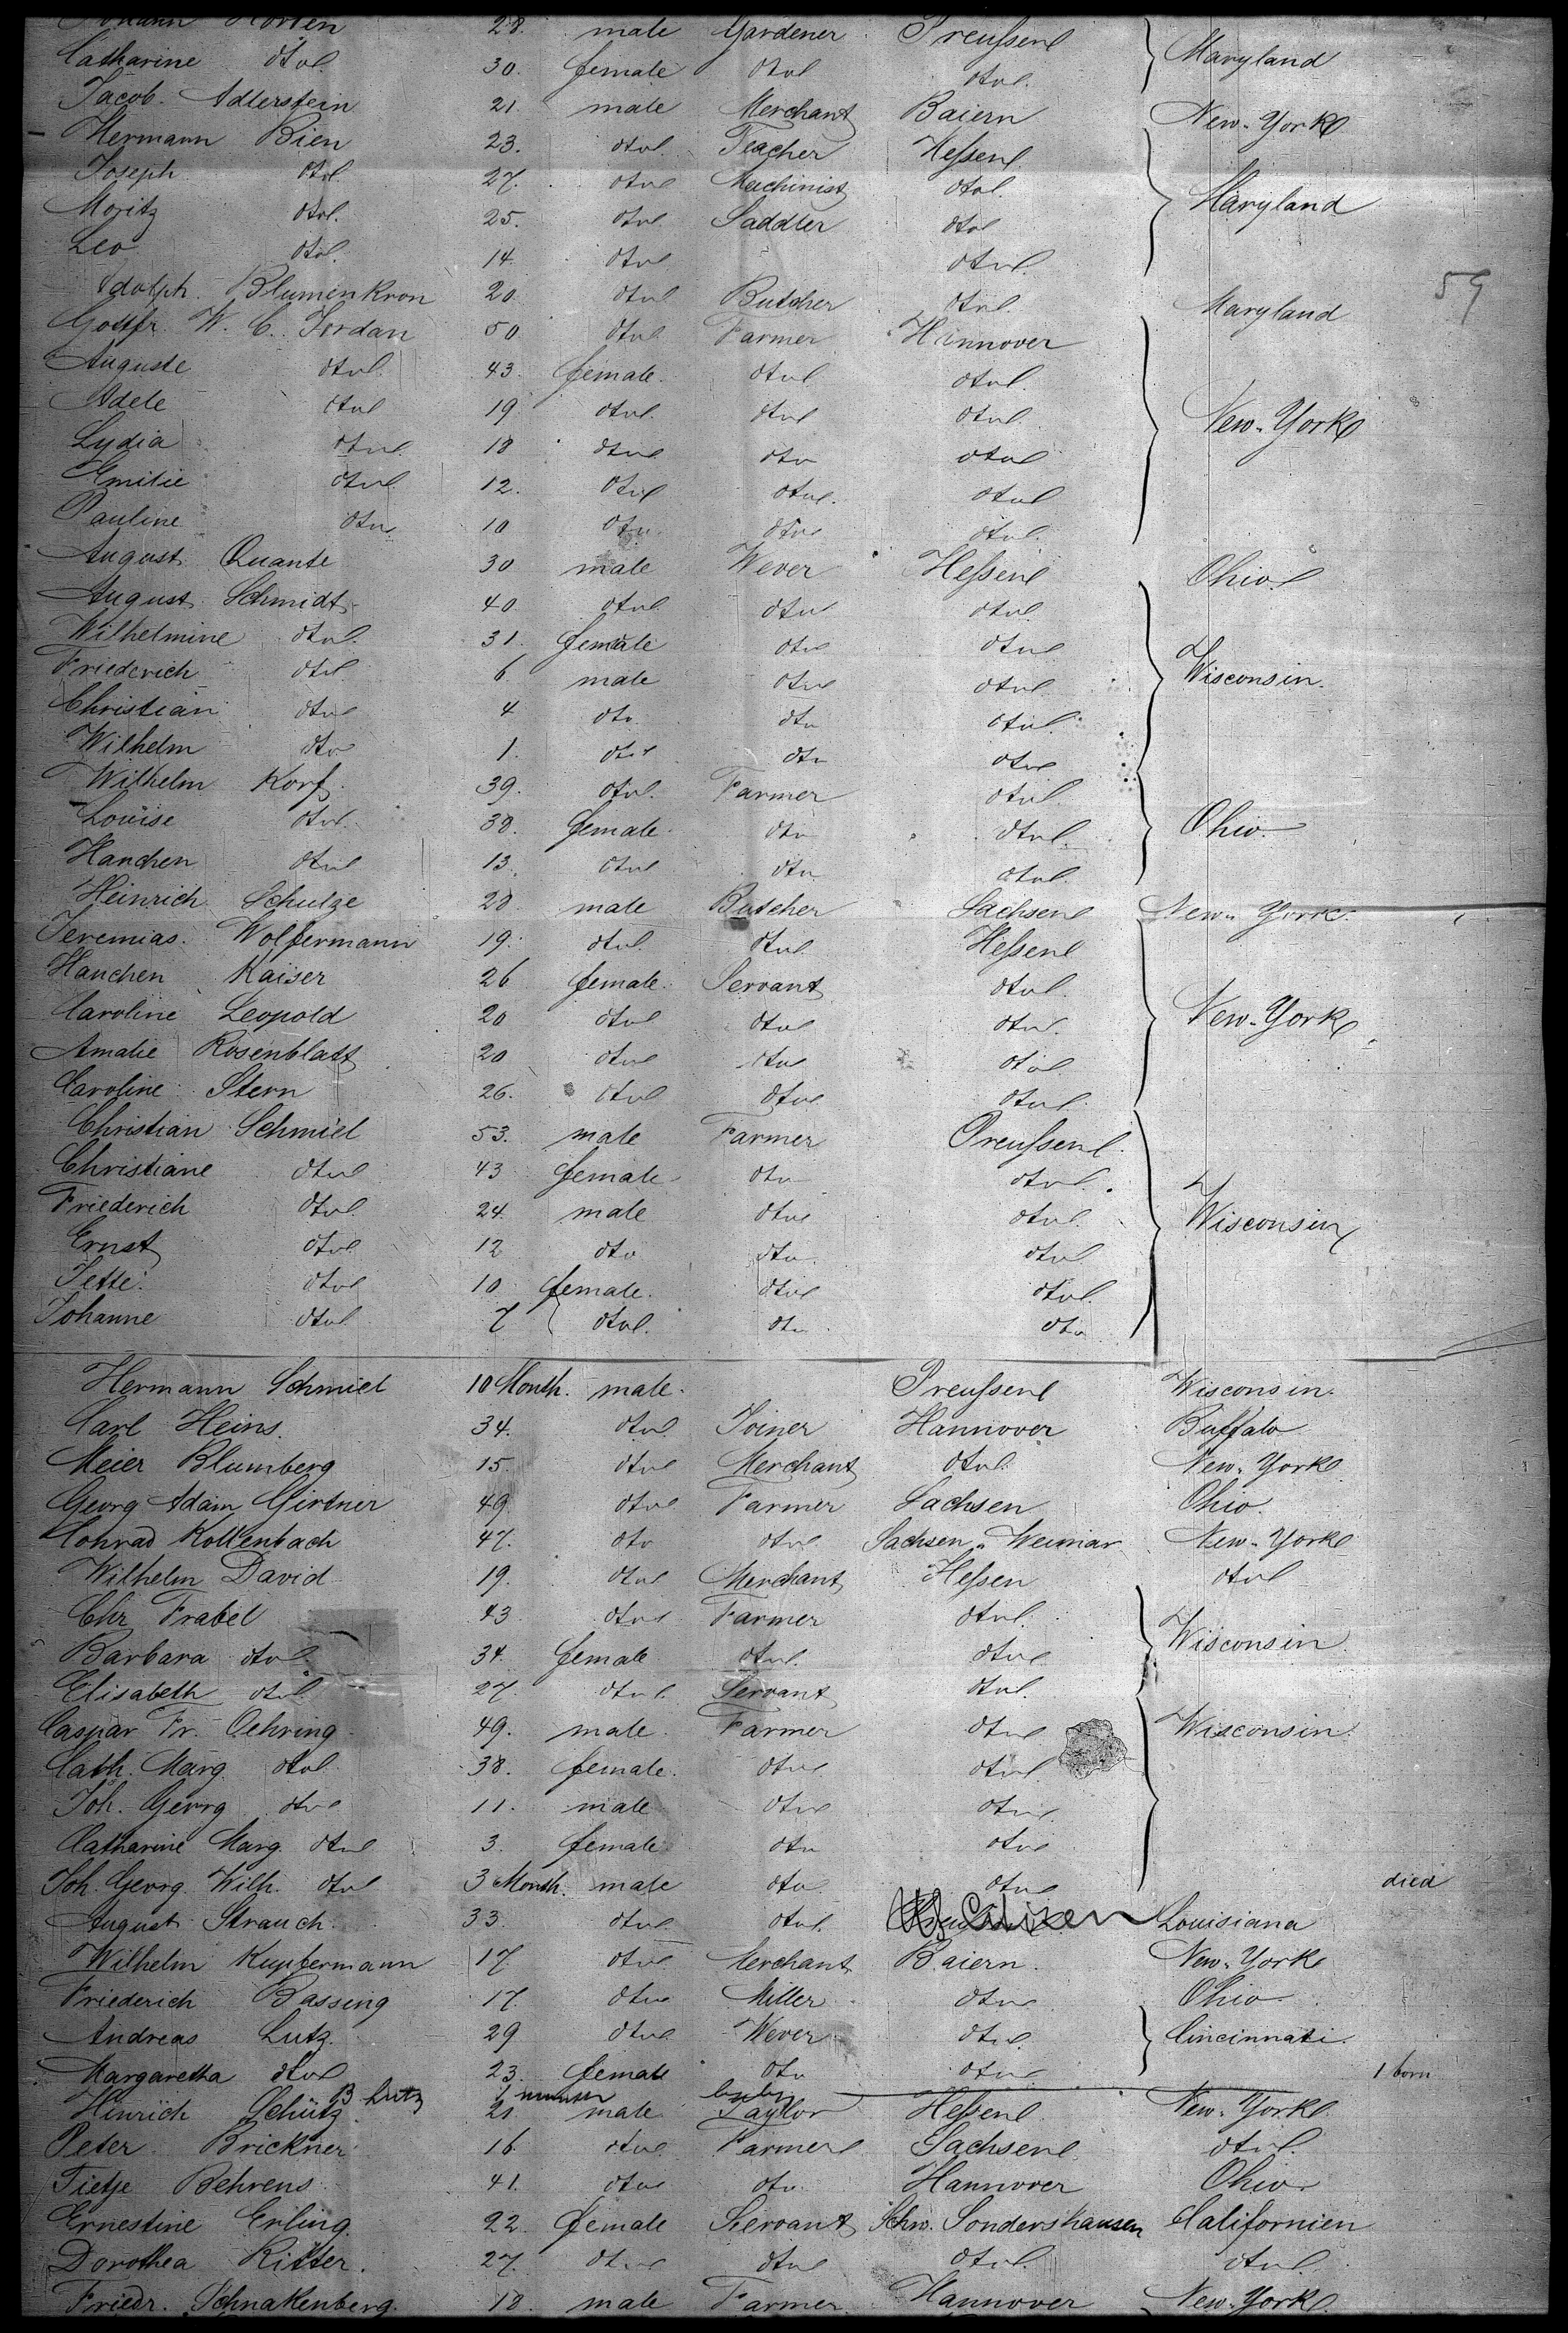 Johann Horten 28. male Gardener Preußen
Catharine dto. 30. female dto dto. Maryland
Jacob. Adlerstein 21. male Merchant Baiern New-York
Hermann Bien 23. dto. Teacher Heßen
Joseph dto. 27. dto Machinist dto. Maryland
Moritz dto. 25. dto Saddler dto
Leo dto. 14 dto dto.
Adolph. Blumenkron 20 dto Butcher dto. Maryland
59
Gottfr. W. C. Jordan 50 dto Farmer Hannover
Auguste dto. 43. female. dto dto.
Adele dto 19 dto. dto dto. New-York
Lydia dto 18 dto dto dto
Emilie dto 12. dto dto. dto
Pauline dto 10 dto. dto dto.
August Quante 30 male Wever Heßen Ohio
August Schmidt 40 dto. dto dto.
Wilhelmine dto. 31. female dto dto
Friederich dto 6 male dto dto Wisconsin.
Christian dto 4 dto. dto dto.
Wilhelm dto 1. dto dto dto
Wilhelm Korf. 39. dto. Farmer dto.
Louise dto. 38. female. dto dto. Ohio.
Hanchen dto 13. dto dto dto.
Heinrich Schulze 28 male Butcher Sachsen New-York.
Jeremias. Wolfermann 19. dto. dto. Heßen
Hanchen Kaiser 26 female. Servant dto.
Caroline Leopold 20 dto dto dto. New-York
Amalie Rosenblatt 20 dto dto dto
Caroline Stern 26. dto dto dto.
Christian Schmiel 53. male Farmer Preußen.
Christiane dto 43 female dto dto.
Friederich dto. 24. male dto dto. Wisconsin
Ernst dto 12 dto dto. dto
Jette. dto 10 female. dto dto.
Johanne dto 7 dto. dto dto
Hermann Schmiel 10 Month. male. Preußen Wisconsin.
Carl Heins. 34. dto. Joiner Hannover Buffalo
Meier Blumberg 15. dto Merchant dto. New-York
Georg Adam Girtner 49. dto Farmer Sachsen Ohio.
Conrad Kollenbach 47. dto dto Sachsen-Weimar New-York
Wilhelm David 19. dto Merchant Heßen dto
Chr Frabel 43 dto Farmer dto.
Barbara dto 34. female dto. dto Wisconsin.
Elisabeth dto 27. dto. Servant dto.
Caspar Fr. Oehring 49. male Farmer dto Wisconsin.
Cath. Marg. dto. 38. female. dto dto.
Joh. Georg dto 11. male dto dto
Catharine Marg. dto 3. female. dto dto
Joh. Georg. Wilh. dto 3 Month. male dto. dto died
August Strauch. 33. dto dto. Citizen Louisiana
Wilhelm Kupfermann 17 dto Merchant Baiern. New-York
Friederich Bassing 17. dto Miller dto Ohio
Andreas Lutz. 29 dto Wever dto. Cincinnati.
Margaretha dto 23. female dto dto 1 born
B Lutz baby
Hinrich Schütz 21. male Taylor Heßen New-York.
Peter Brickner 16. dto Farmer Sachsen dto.
Tietje Behrens 41. dto dto. Hannover Ohio.
Ernestine Erling. 22. female Servant Schw. Sondershausen Californien
Dorothea Ritter. 27. dto dto dto. dto.
Friedr. Schnakenberg. 18. male Farmer Hannover New-York.